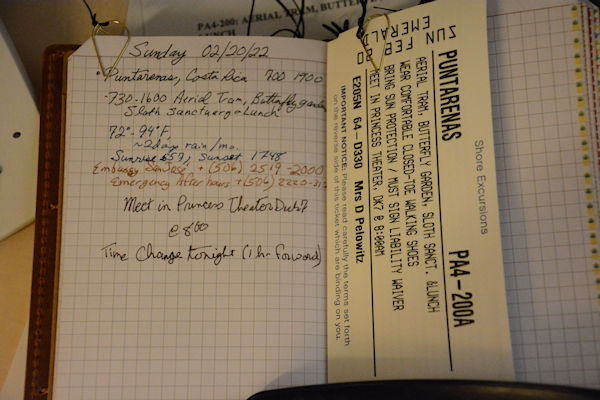 PA4-200: AERIAL TRAM, BUTTER
LUNCH
Sunday 02/20/22
• Puntarenas, Costa Rica 700 1900
-730-1600 Aerial Tram, Butterfly garden
Sloth Sanctuary - Lunch
72°-94°F,
~2 days rain/mo.
Sunrise 559, Sunset 1748
Embassy San Jose + (506) 2519-2000
Emergency After hours + (506) 2220-31
Meet in Princess Theater Deck 7
@ 800
Time Change tonight (1 hr forward)
EMERALD
SUN FEB 20
PUNTARENAS PA4-200A
AERIAL TRAM, BUTTERFLY GARDEN, SLOTH SANCT. &LUNCH
WEAR COMFORTABLE CLOSED-TOE WALKING SHOES
BRING SUN PROTECTION / MUST SIGN LIABILITY WAIVER
MEET IN PRINCESS THEATER, DK7 @ 8:00AM
E205N 64-D330 Mrs D Pelowitz
IMPORTANT NOTICE: Please read carefully the terms set forth
on the reverse side of this ticket which are binding on you.
Shore Excursions